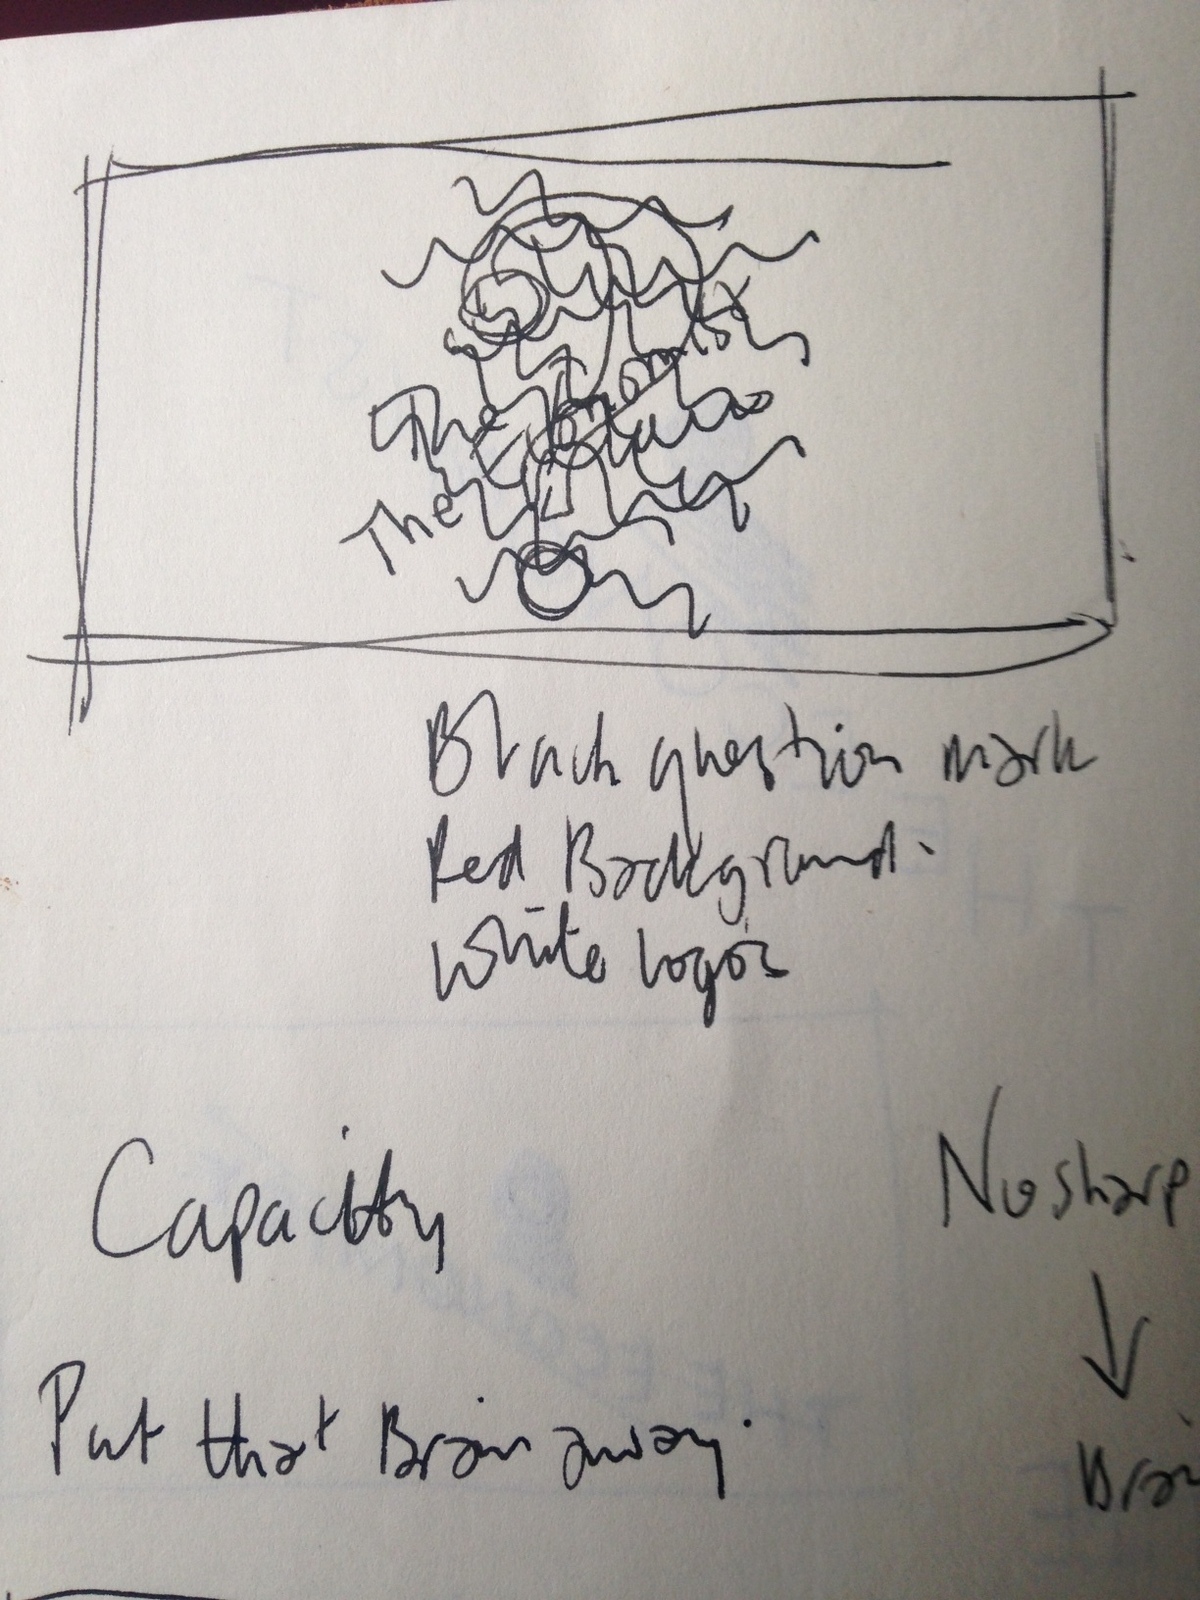 The Economist
The
Black question mark
Red Background.
White logos
Capacity
No sharp
Put that Brain away.
Brai